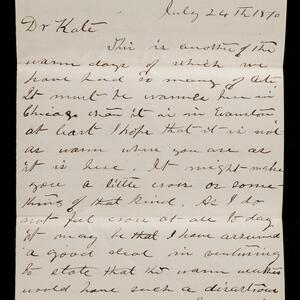 July 24th 1890
Dr Kate
This is another of the
warm days of which we
have had so many of late
It must be warmer in
Chicago than it is in Evanston
at least I hope that it is not
as warm where you are as
it is here. It might make
you a little cross or some
thing of that kind. As I do
not feel cross at all to day
it may be that I have assumed
a good deal in venturing
to state that the warm weather
would have such a disastrous